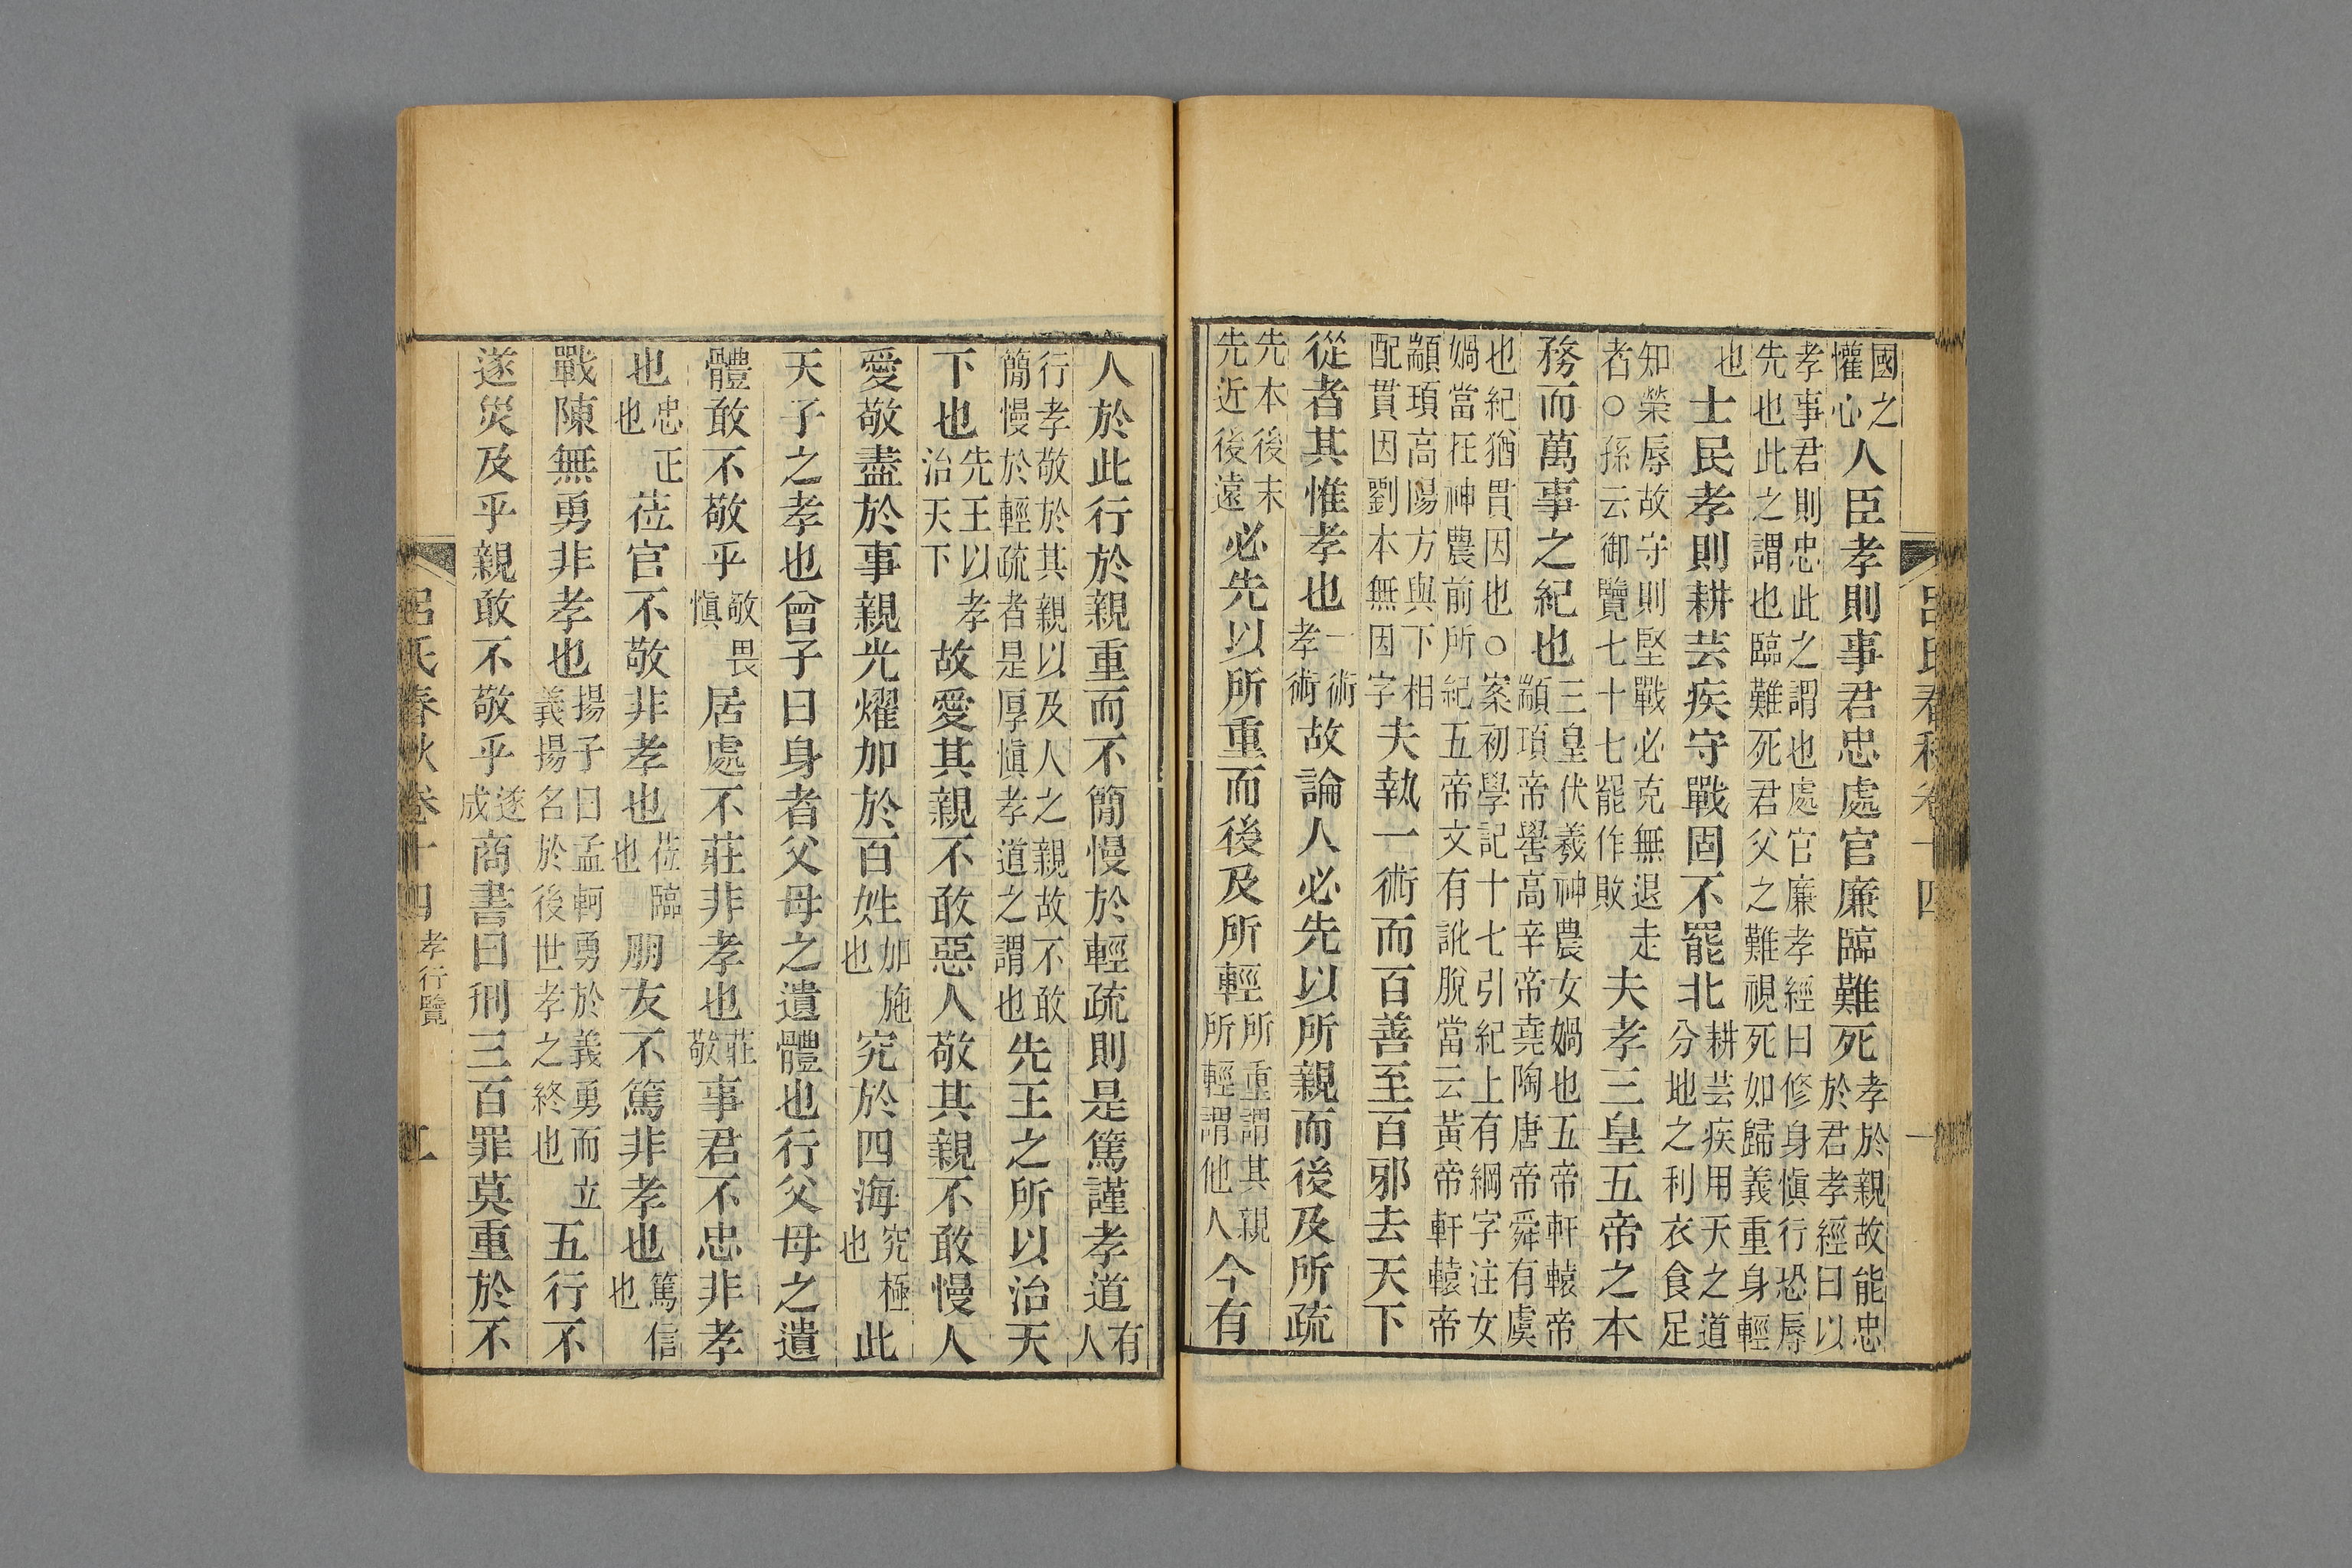 國之懽心人臣孝則事君忠處官廉臨難死孝於親故能忠於君孝經曰以
孝事君則忠此之謂也處官廉孝經曰修身愼行恐辱先也此之謂也臨難死君父之難視死如歸義重身輕
也士民孝則耕芸疾守戰固不罷北耕芸疾用天之道分地之利衣食足
知榮辱故守則堅戰必克無退走者○孫云御覽七十七罷作敗夫孝三皇五帝之本
務而萬事之紀也三皇伏羲神農女媧也五帝軒轅帝顓頊帝嚳高辛帝堯陶唐帝舜有虞
也紀猶貫因也○案初學記十七引紀上有綱字注女媧當在神農前所紀五帝文有訛脫當云黃帝軒轅帝
顓頊高陽方與下相配貫因劉本無因字夫執一術而百善至百邪去天下
從者其惟孝也一術孝術故論人必先以所親而後及所疏
先本後末先近後遠必先以所重而後及所輕所重謂其親所輕謂他人今有
人於此行於親重而不簡慢於輕疏則是篤謹孝道有人
行孝敬於其親以及人之親故不敢簡慢於輕疏者是厚愼孝道之謂也先王之所以治天
下也先王以孝治天下故愛其親不敢惡人敬其親不敢慢人
愛敬盡於事親光燿加於百姓加施也究於四海究極也此
天子之孝也曾子曰身者父母之遺體也行父母之遺
體敢不敬乎敬畏愼居處不莊非孝也莊敬事君不忠非孝
也忠正也莅官不敬非孝也莅臨也朋友不篤非孝也篤信也
戰陳無勇非孝也揚子曰孟軻勇於義勇而立義揚名於後世孝之終也五行不
遂災及乎親敢不敬乎遂成商書曰刑三百罪莫重於不
呂氏春秋卷十四 孝行覽